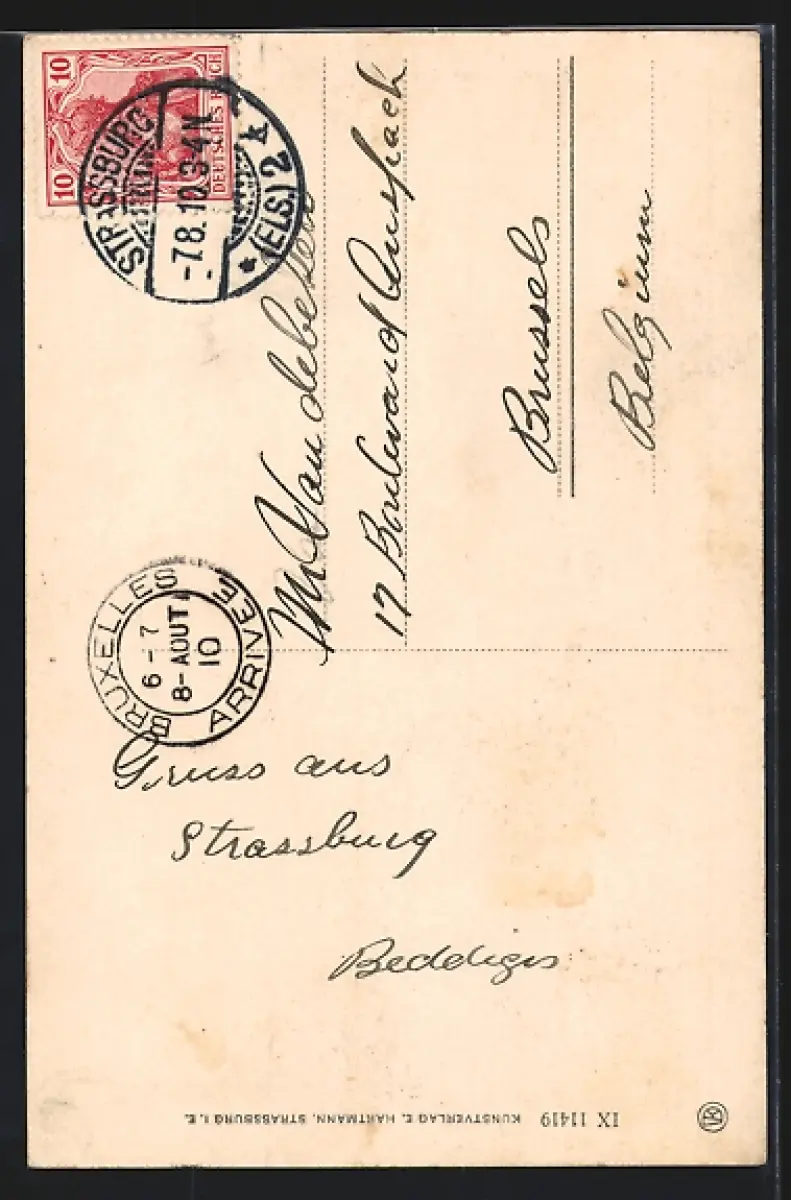 10 10
DEUTSCHES REICH
STRASSBURG
-7.8.10.3-4N
* (ELS.) 2 k
M Vandebe
17 Boulevard Anspach
Brussels
Belgium
BRUXELLES
6-7
8-AOUT
10
ARRIVEE
Gruss aus
Strassburg
Beddiges
IX 11419 KUNSTVERLAG E. HARTMANN, STRASSBURG I. E.